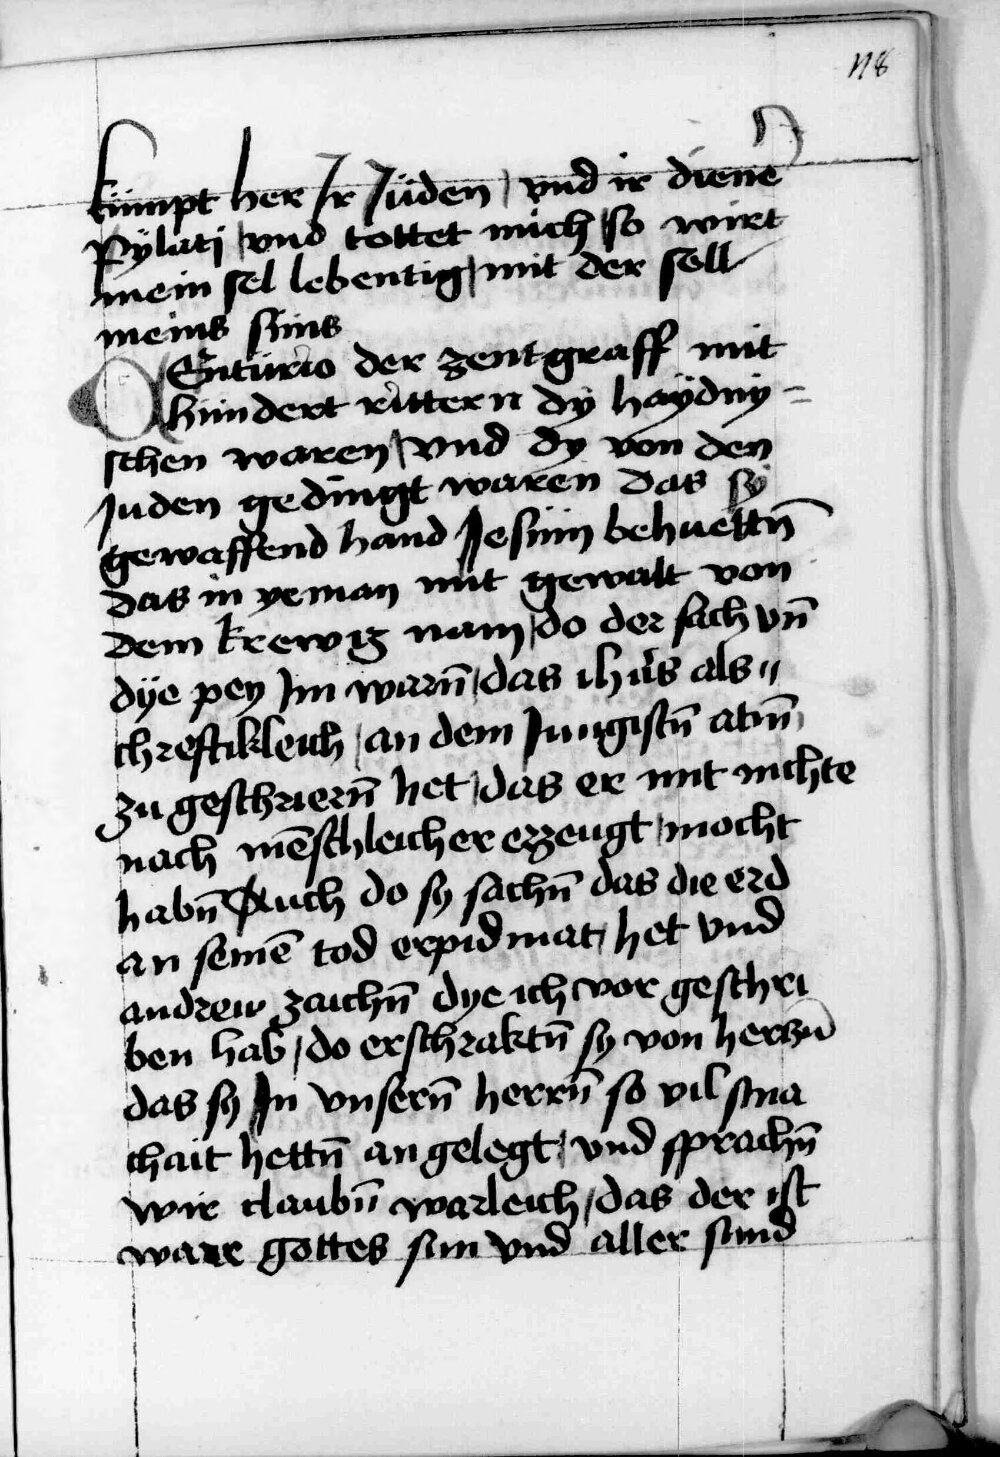 118
kümpt her Ir Jüden / vnd ir dienē
Pÿlati / vnd tottet mich / so wirt
mein sel lebentig / mit der sell
meins suns
Centurio der zentgraff mit
hundert rittern dÿ haÿdny=
schen waren / vnd dy von den
Juden gedingt waren das sy
gewaffend hand Jesum behuettn̄
das in yeman mit gewalt von
dem krewtz nam / do der sach vn̄
dÿe pey Im warn̄ / das ihūs als
chreftikleich / an dem Jungistn̄ atm̄
zu geschriern̄ het / das er mit nichte
nach mēschleicher erzeugt / mocht
habn̄ Auch do sy sachn̄ das die erd
an seinē tod erpidmat / het vnd
andrew zaichn̄ dye ich vor geschri
ben hab / do erschraktn̄ sy von hertzn̄
das sy In vnsern̄ herrn̄ so vil sma
chait hettn̄ an gelegt / vnd sprachn̄
wir claubn̄ warleich / das der ist
warr gottes sun vnd aller sund